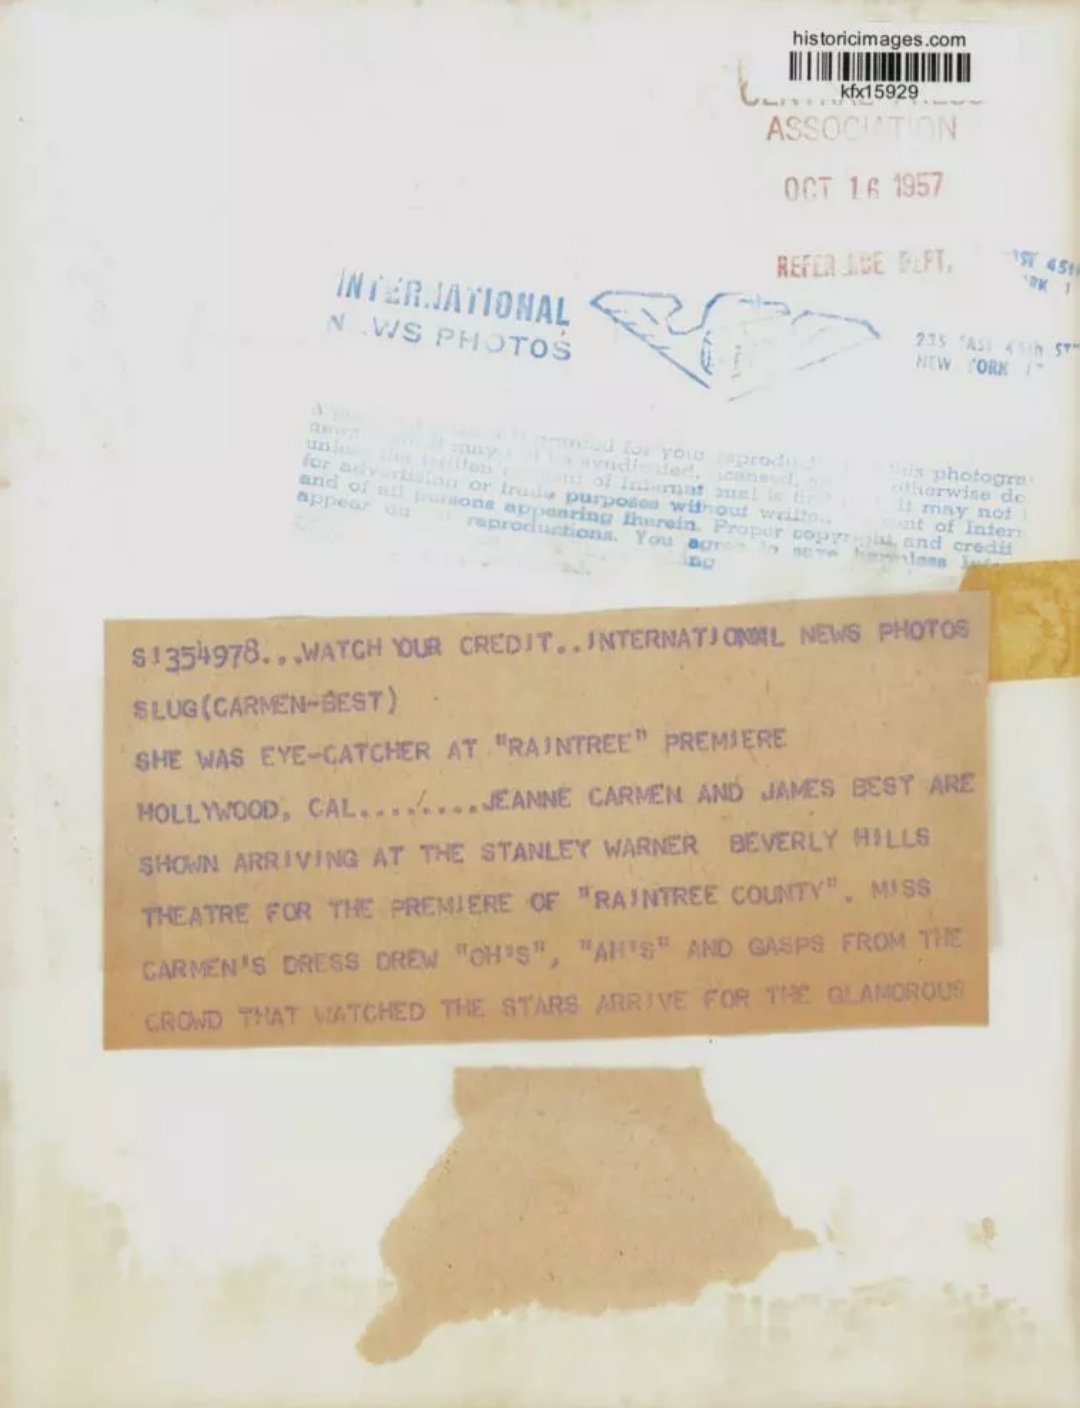 historicimages.com
kfx15929
ASSOCIATION
OCT 16 1957
REFERENCE DEPT.
INTERNATIONAL
NEWS PHOTOS
235 EAST 45th ST
NEW YORK
granted for your
may syndicated, licensed,
this photogra
written of Internat
otherwise
for advertising or trade purposes without written
It may not
and of all persons appearing therein. Proper copyright and credit
of Intern
appear on reproductions. You agree to save harmless
S1354978...WATCH YOUR CREDIT..INTERNATIONAL NEWS PHOTOS
SLUG(CARMEN-BEST)
SHE WAS EYE-CATCHER AT "RAINTREE" PREMIERE
HOLLYWOOD, CAL.........JEANNE CARMEN AND JAMES BEST ARE
SHOWN ARRIVING AT THE STANLEY WARNER BEVERLY HILLS
THEATRE FOR THE PREMIERE OF "RAINTREE COUNTY". MISS
CARMEN'S DRESS DREW "OH'S", "AH'S" AND GASPS FROM THE
CROWD THAT WATCHED THE STARS ARRIVE FOR THE GLAMOROUS